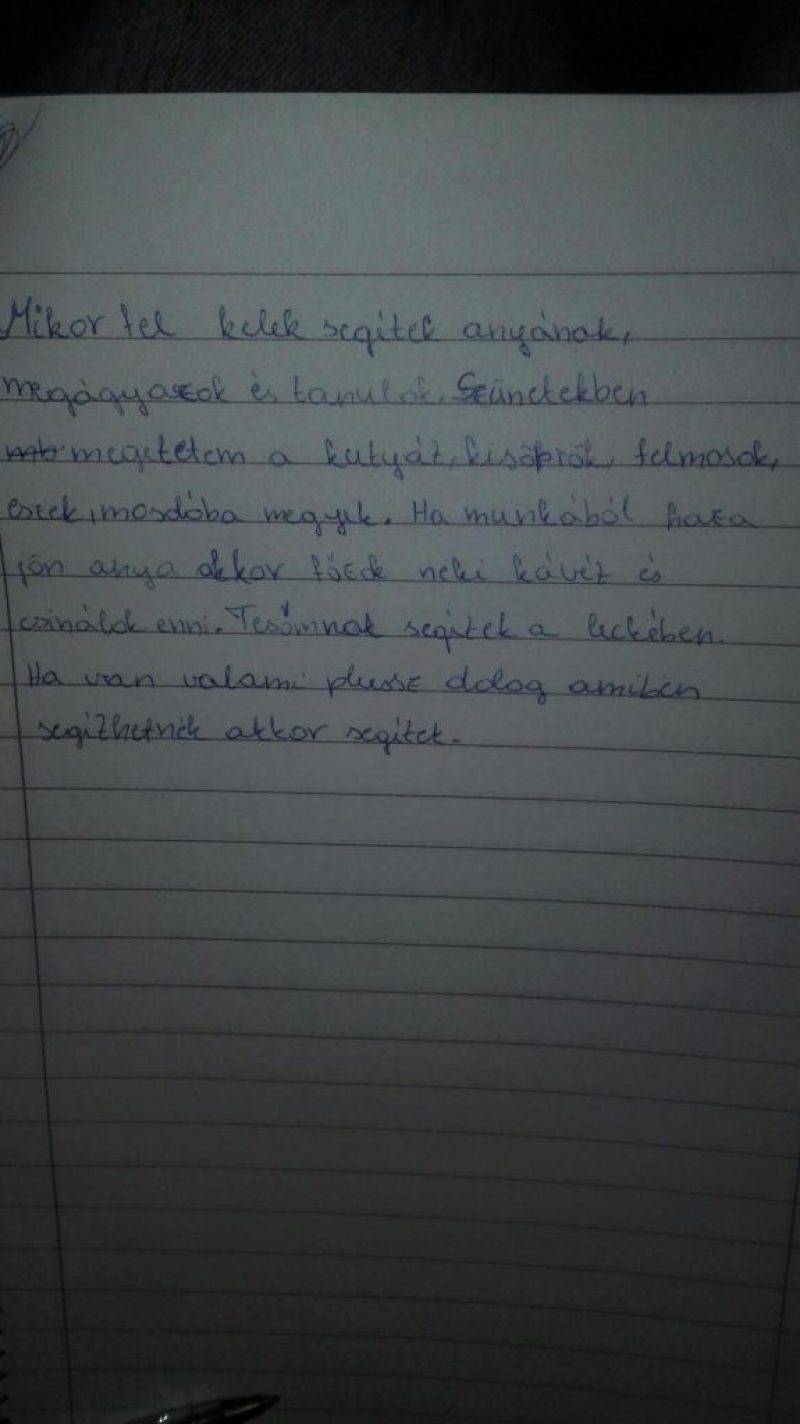 Mikor fel kelek segítek anyának,
megágyazok és tanulok. Szünetekben
megetetem a kutyát, kisöprök, felmosok,
eszek, mosdóba megyek. Ha munkából haza
jön anya akkor főzök neki kávét és
csinálok enni. Tesómnak segítek a leckében.
Ha van valami plussz dolog amiben
segíthetnék akkor segítek.